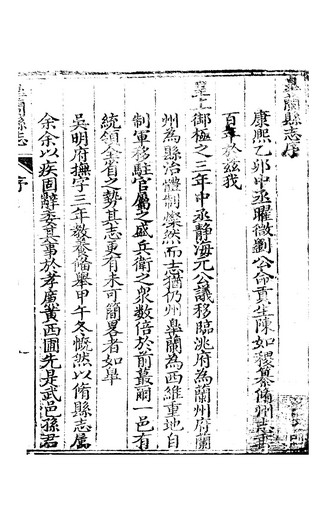 皋蘭縣志序
康熙乙卯中丞曜微劉公命貢生陳如稷纂脩州志
百年於兹我
皇上
御極之三年中丞静海元公議移臨洮府為蘭州府蘭
州為縣治體制燦然而志猶仍州皋蘭為西維重地自
制軍移駐官屬之盛兵衛之衆數倍於前蕞爾一邑有
統領全省之勢其志更有未可簡畧者如皋
吳明府撫字三年教養備舉甲午冬慨然以脩縣志屬
余余以疾固辭委其事於孝廉黄西圃先是武邑孫君
皋蘭縣志
序